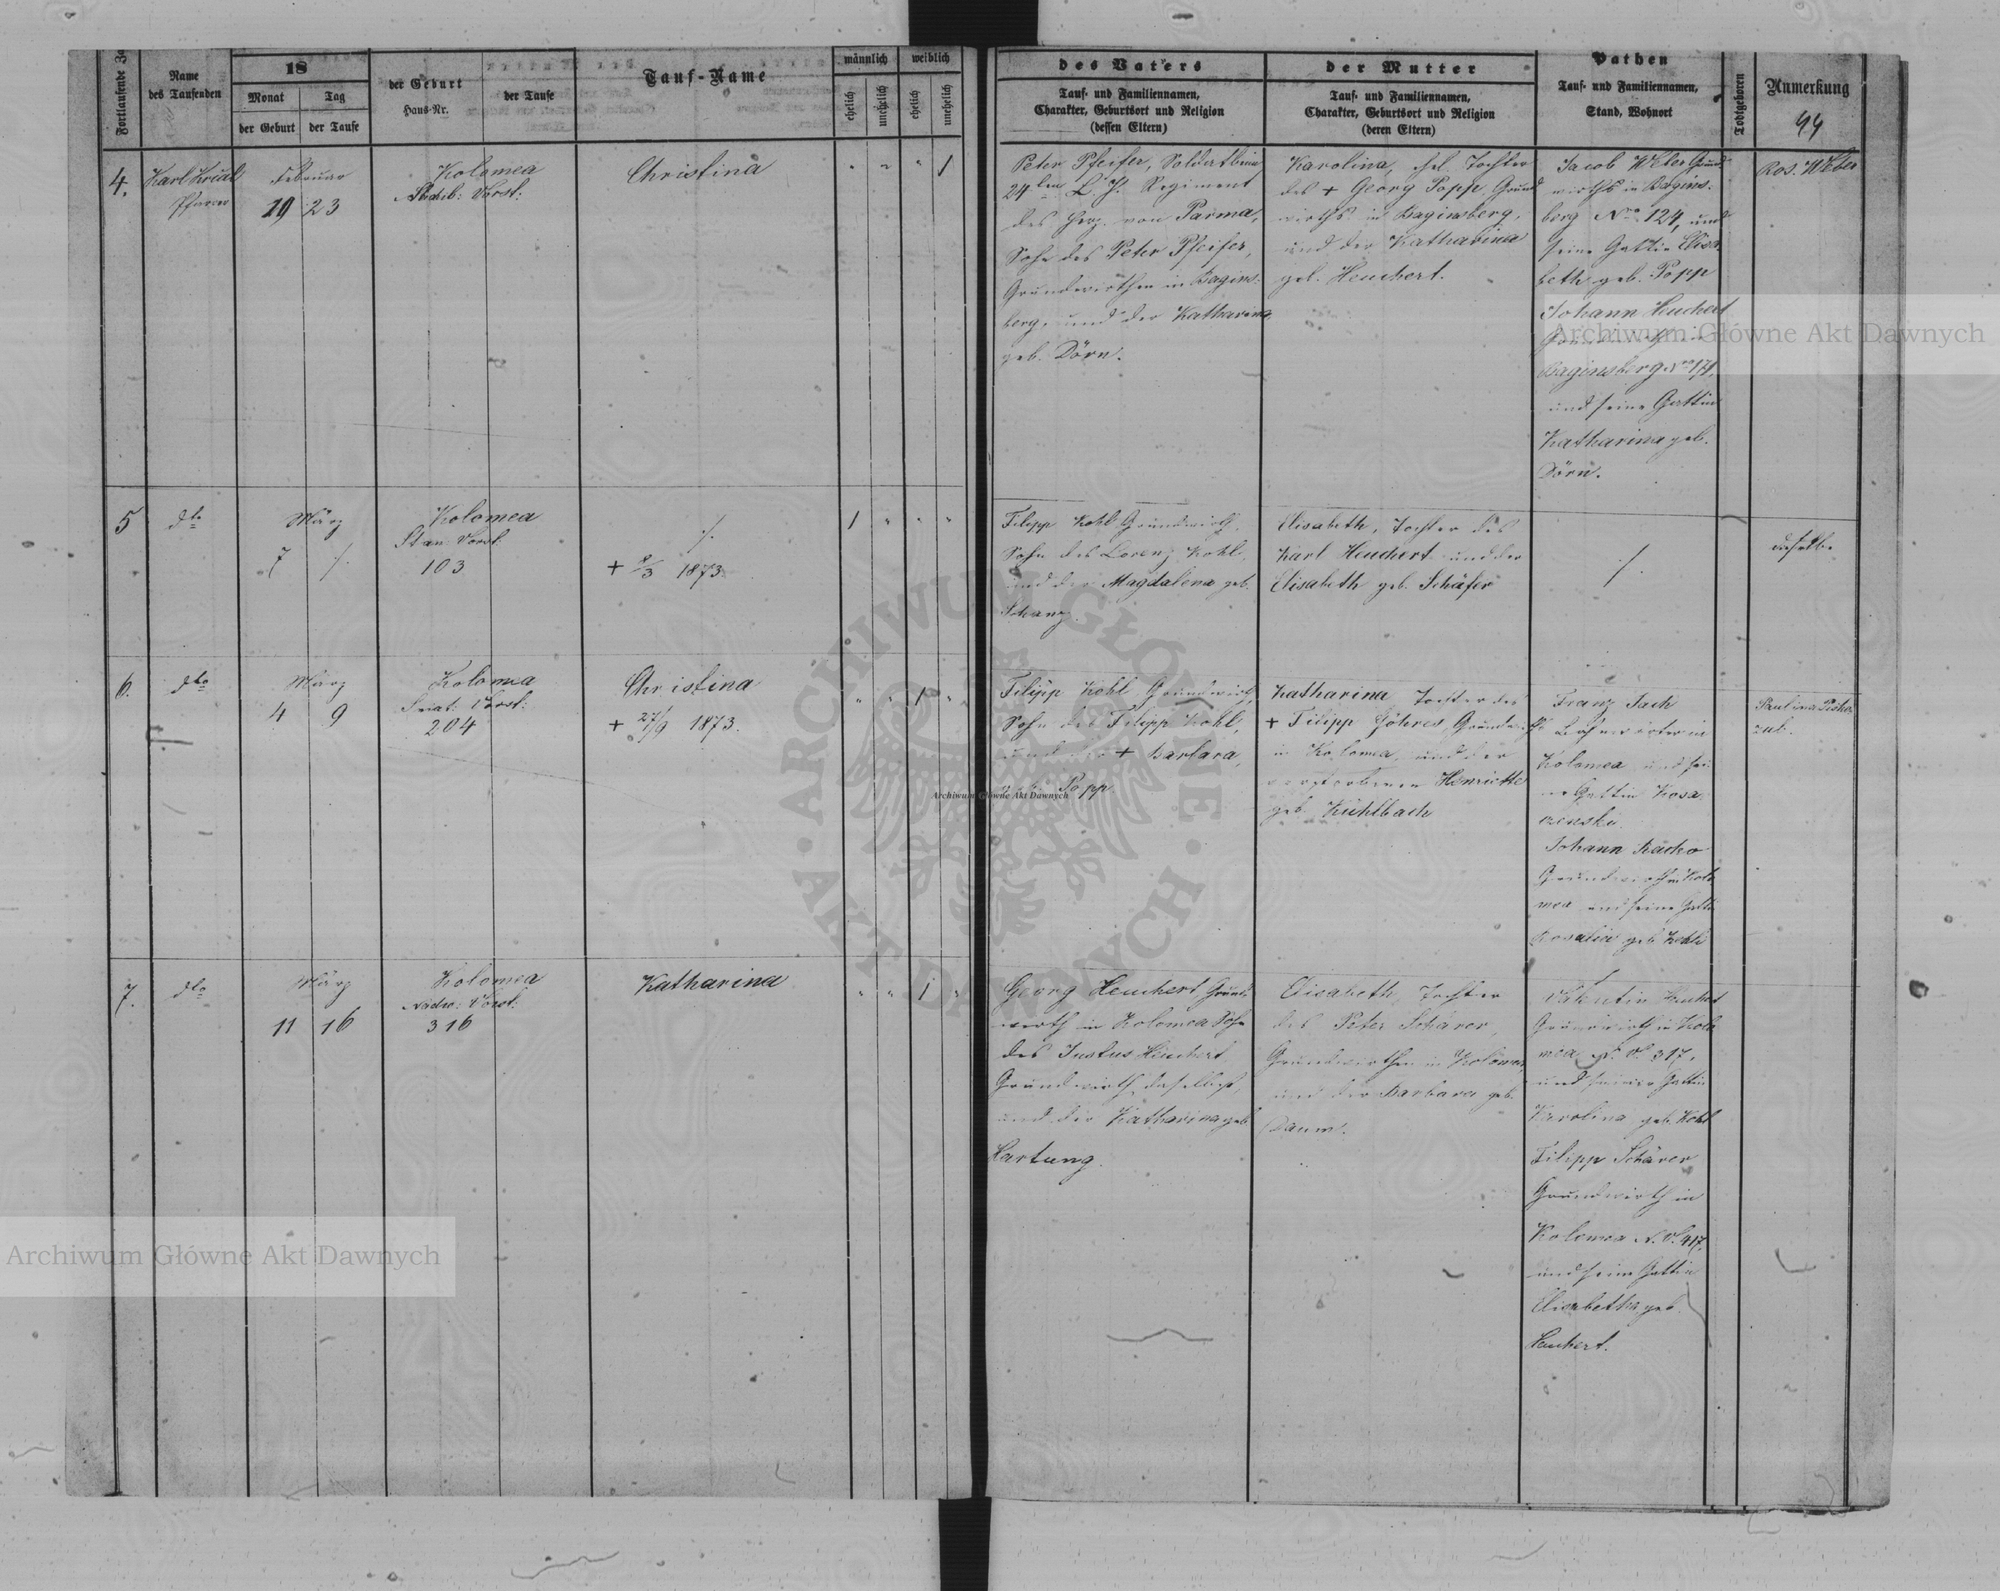 Fortlaufende
Name
des Taufenden
18
Monat
Tag
der Geburt
der Taufe
der Geburt
Haus-Nr.
der Taufe
Tauf-Name
männlich
weiblich
ehelich
unehelich
ehelich
unehelich
des Vaters
Tauf- und Familiennamen,
Charakter, Geburtsort und Religion
(dessen Eltern)
der Mutter
Tauf- und Familiennamen,
Charakter, Geburtsort und Religion
(deren Eltern)
Pathen
Tauf- und Familiennamen,
Stand, Wohnort
Todtgeboren
Anmerkung
4.
Pfarrer
Februar
19 23
Kolomea
Vorst:
Christina
" " " 1
Peter Pfeifer,
24ten L. J. Regiment
des Herz. von Parma,
Sohn des Peter Pfeifer,
Grundwirthen in Bagins-
berg, und der Katharina
geb. Dörn.
Karolina, ehel. Tochter
des + Georg Popp, Grund
wirths in Baginsberg,
und der Katharina
geb. Heuchert.
Jacob Weber Grund
wirths in Bagins-
berg Nro 124, und
seine Gattin Elisa
beth geb. Popp
Johann Heuchert
Baginsberg Nro 171,
und seine Gattin
Katharina geb.
Dörn.
Ros. Weber
5
dto
März
7 /.
Kolomea
Stan: Vorst:
103
/.
+ 8/3 1873.
1 " " "
Filipp Kohl Grundwirth,
Sohn des Lorenz Kohl,
und der Magdalena geb.
Schanz
Elisabeth, Tochter des
Karl Heuchert und der
Elisabeth geb. Schäfer
/.
dieselbe
6.
dto
März
4 9
Kolomea
Vorst:
204
Christina
+ 27/9 1873.
" " 1 "
Filipp Kohl Grundwirth,
Sohn des Filipp Kohl,
und der + Barbara,
Popp
Katharina Tochter des
+ Filipp Göhres, Grundwirth
in Kolomea, und der
verstorbenen Henriette
geb. Kühlbach
Franz
in
Kolomea und sei
ne Gattin
Johann
Grundwirth in Kolo
mea und seine Gattin
Rosalia geb. Kohl
Paulina
7.
dto
März
11 16
Kolomea
Nadw: Vorst:
316
Katharina
" " 1 "
Georg Heuchert Grund
wirth in Kolomea Sohn
des Justus Heuchert,
Grundwirth daselbst,
und der Katharina geb.
Hartung.
Elisabeth, Tochter
des Peter Schärer,
Grundwirthen in Kolomea,
und der Barbara geb.
Daum.
Valentin Heuchert
Grundwirth in Kolo
mea N.o 317,
und seine Gattin
Karolina geb. Kohl
Filipp Schärer
Grundwirth in
Kolomea N.o 417.
und seine Gattin
Elisabetha geb.
Heuchert.
Archiwum Główne Akt Dawnych
Archiwum Główne Akt Dawnych
Archiwum Główne Akt Dawnych
ARCHIWUM GŁÓWNE
AKT DAWNYCH